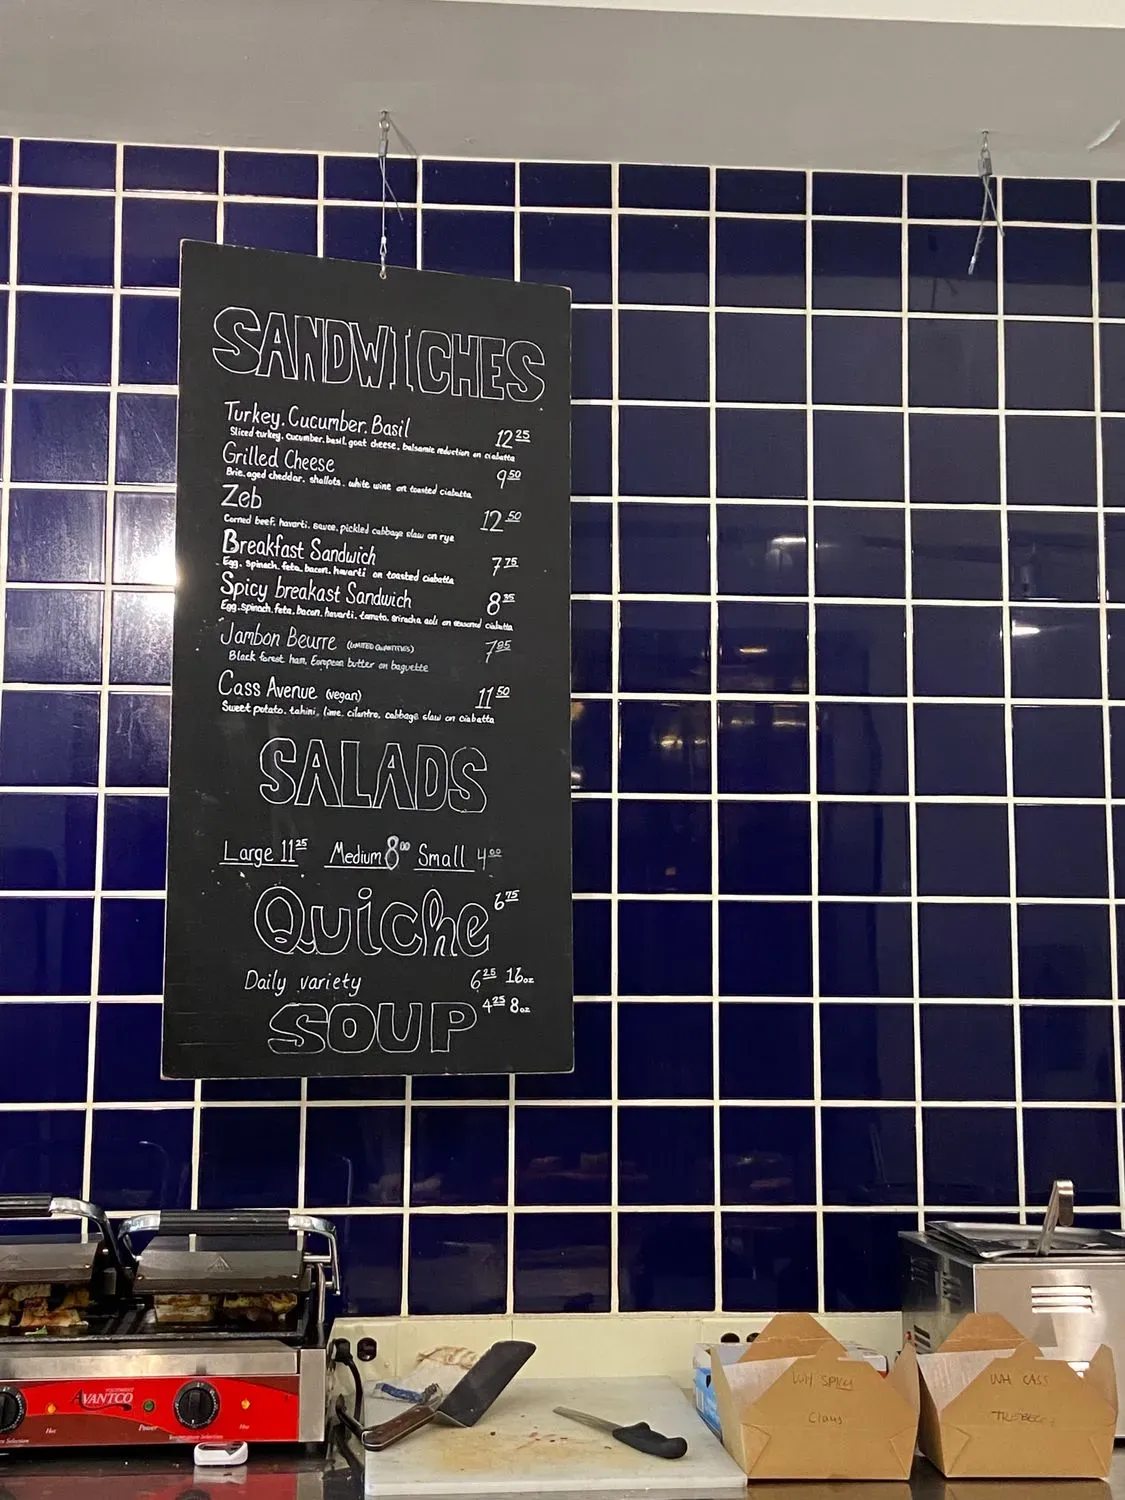 SANDWICHES
Turkey. Cucumber. Basil 12 25
Sliced turkey. cucumber. basil. goat cheese, balsamic reduction on ciabatta
Grilled Cheese 9 50
Brie. aged cheddar. shallots. white wine on toasted ciabatta
Zeb 12 50
Corned beef. havarti. sauce. pickled cabbage slaw on rye
Breakfast Sandwich 7 75
Egg. spinach. feta. bacon. havarti on toasted ciabatta
Spicy breakast Sandwich 8 35
Egg. spinach. feta. bacon. havarti. tomato. sriracha aoli on seasoned ciabatta
Jambon Beurre (LIMITED QUANTITIES) 7 85
Black forest ham, European butter on baguette
Cass Avenue (vegan) 11 50
Sweet potato. tahini, lime. cilantro. cabbage slaw on ciabatta
SALADS
Large 11 25 Medium 8 00 Small 4 00
Quiche 6 75
Daily variety
6 25 16oz
4 25 8oz
SOUP
AVANTCO
EQUIPMENT
Hot Power Temperature Selection Hot
WH SPICY
Claus
WH CASS